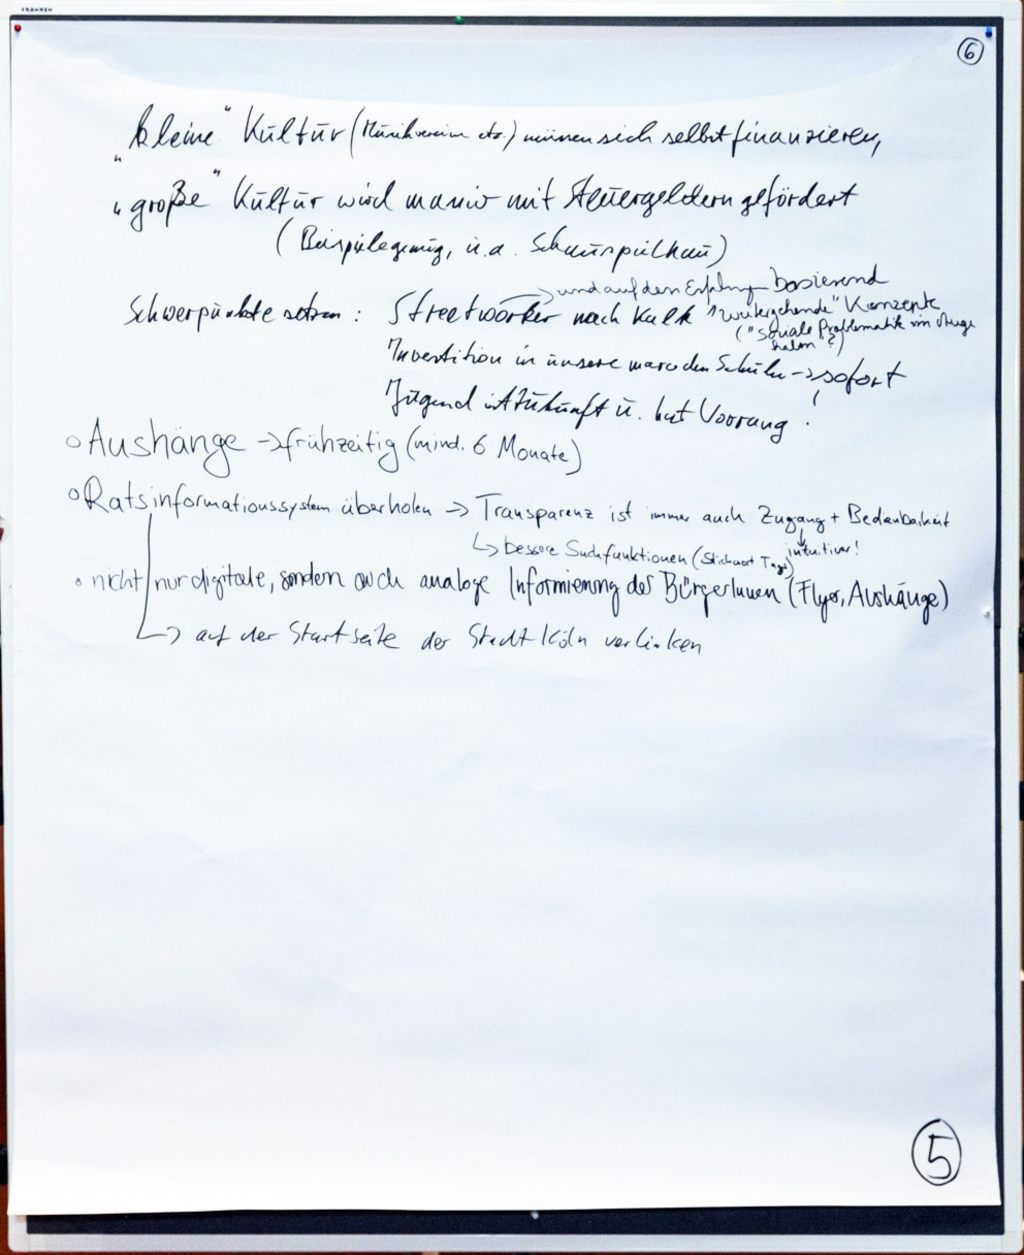 FRANKEN
⑥
„kleine" Kultur (Musikverein etc.) müssen sich selbst finanzieren,
„große" Kultur wird massiv mit Steuergeldern gefördert
(Beispiele genug, u.a. Schauspielhaus)
→ und auf den Erfahrungen basierend
Schwerpunkte setzen: Streetworker nach Kalk "weitergehende" Konzepte
("soziale Problematik im Auge
halten"?)
Investition in unsere maroden Schulen → sofort!
Jugend ist Zukunft u. hat Vorrang!
○ Aushänge → frühzeitig (mind. 6 Monate)
○ Ratsinformationssystem überholen → Transparenz ist immer auch Zugang + Bedienbarkeit
↓ intuitiver!
↳ bessere Suchfunktionen (Stichwort Tags)
○ nicht nur digitale, sondern auch analoge Informierung der BürgerInnen (Flyer, Aushänge)
↳ auf der Startseite der Stadt Köln verlinken
⑤